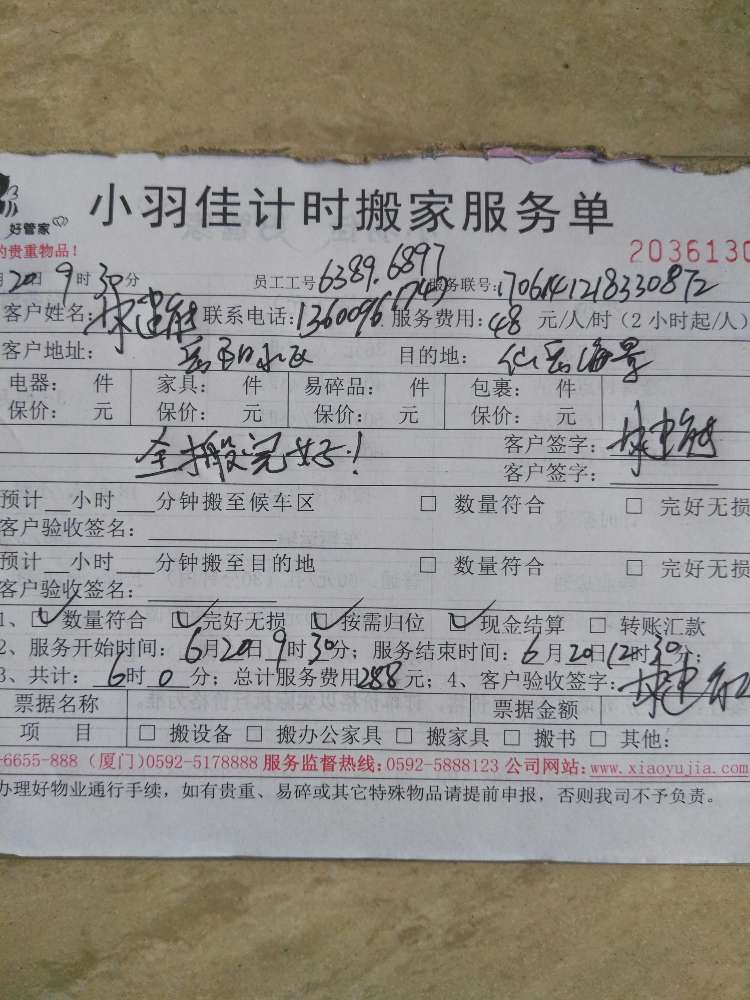 好管家
小羽佳计时搬家服务单
的贵重物品！
2036130
月20日9时30分 员工工号6389.6897 服务联号:1706141218330872
客户姓名: 联系电话: 服务费用:48 元/人/时(2小时起/人)
客户地址: 目的地: 仙岳海景
电器: 件 家具: 件 易碎品: 件 包裹: 件
保价: 元 保价: 元 保价: 元 保价: 元
全搬完好！ 客户签字:
客户签字:
预计__小时__分钟搬至候车区 □ 数量符合 □ 完好无损
客户验收签名:
预计__小时__分钟搬至目的地 □ 数量符合 □ 完好无损
客户验收签名:
1、☑数量符合 ☑完好无损 ☑按需归位 ☑现金结算 □ 转账汇款
2、服务开始时间: 6月20日9时30分; 服务结束时间: 6月20日12时30分;
3、共计: 6时0分; 总计服务费用288元; 4、客户验收签字:
票据名称 票据金额
项 目 □ 搬设备 □ 搬办公家具 □ 搬家具 □ 搬书 □ 其他:
-6655-888 (厦门)0592-5178888 服务监督热线:0592-5888123 公司网站:www.xiaoyujia.com
办理好物业通行手续，如有贵重、易碎或其它特殊物品请提前申报，否则我司不予负责。